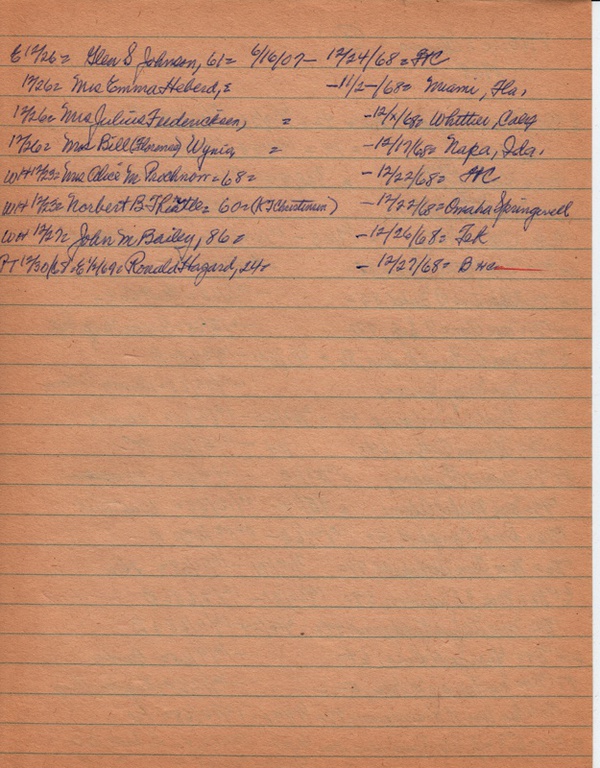 E 12/26= Glen S Johnson, 61= 6/16/07- 12/24/68= HC
12/26= Mrs Emma Heberd, = -11/2-/68= Miami, Fla.
12/26= Mrs Julius Fredericksen, = -12/ /68= Whittier, Calif
12/26= Mrs Bill (Florence) Wynia, = -12/17/68= Napa, Ida.
WH 12/23= Mrs Alice M Prochnow= 68= -12/22/68= HC
WH 12/23= Norbert B Thistle= 60= (K T Christensen) -12/22/68= Omaha Springwell
WH 12/27= John M Bailey, 86= -12/26/68= Tek
PT 12/30/68= E 1/2/69= Ronald Hagard, 24= -12/27/68= B HC